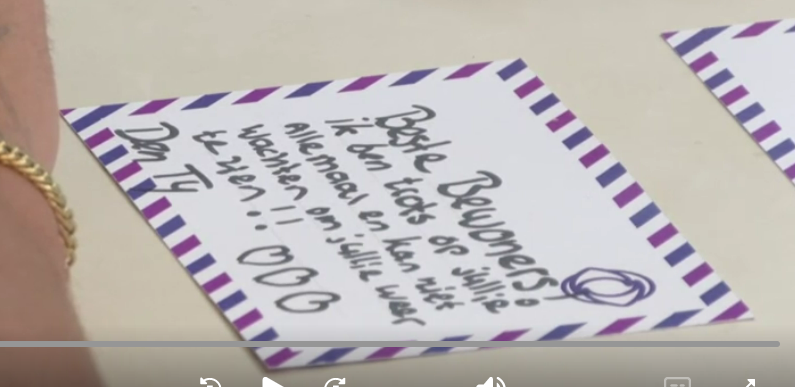 Beste Bewoners!
ik ben trots op jullie
Allemaal en kan niet
Wachten om jullie weer
te zien..!!
Den Ty